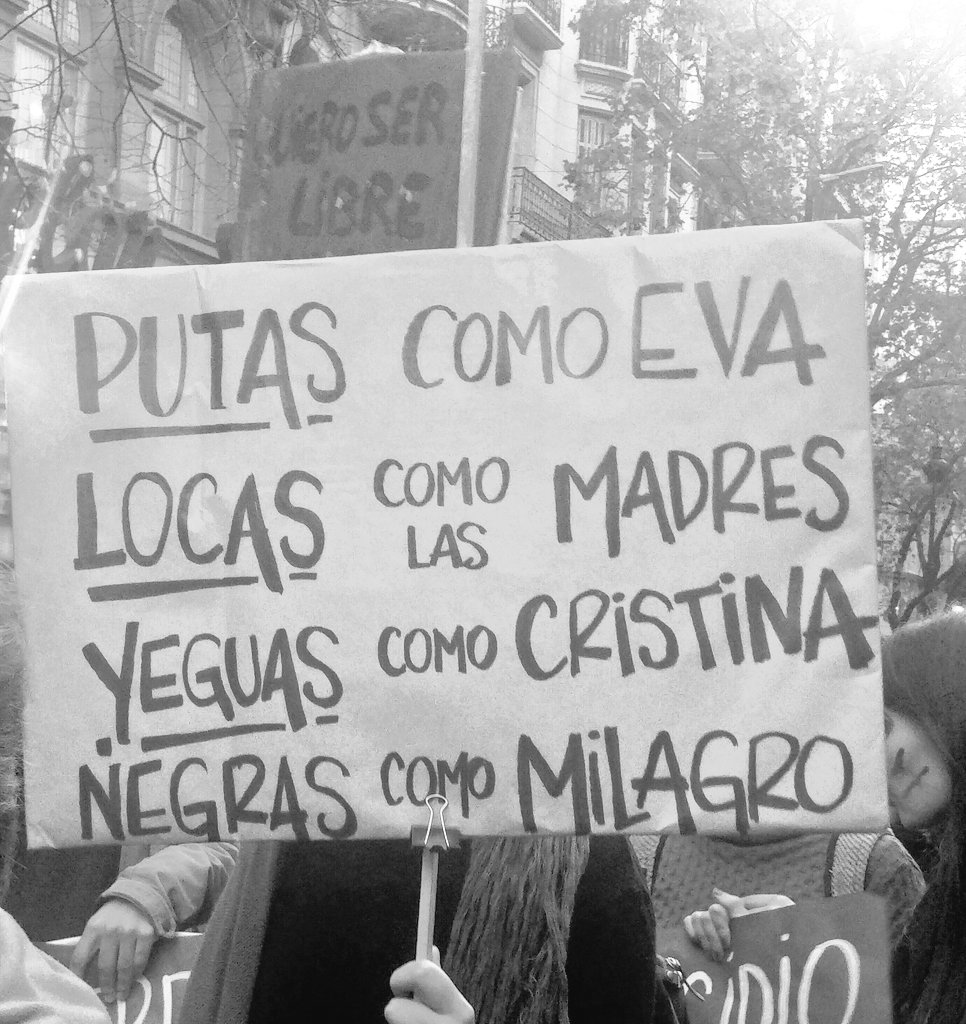 QUIERO SER
LIBRE
PUTAS COMO EVA
LOCAS COMO LAS MADRES
YEGUAS COMO CRISTINA
NEGRAS COMO MILAGRO
CIDIO